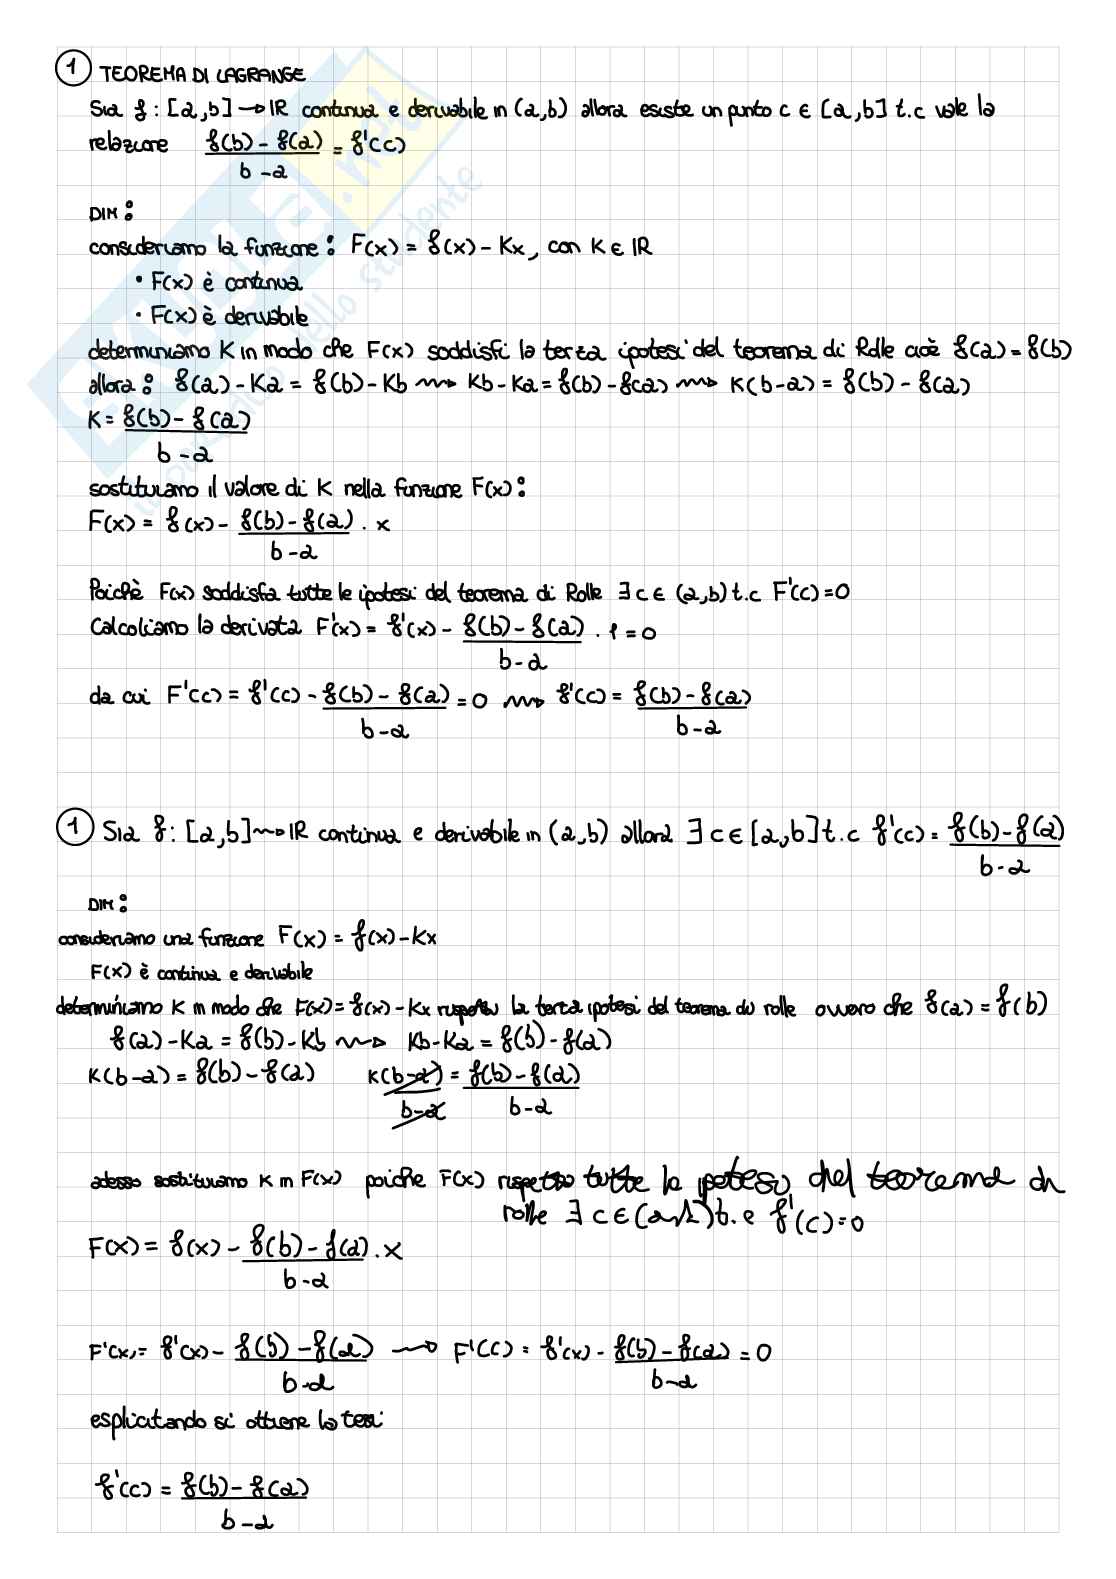 1 TEOREMA DI LAGRANGE
Sia f : [a,b] → IR continua e derivabile in (a,b) allora esiste un punto c ∈ [a,b] t.c vale la
relazione f(b) - f(a) / b - a = f'(c)
DIM :
consideriamo la funzione : F(x) = f(x) - Kx, con K ∈ IR
• F(x) è continua
• F(x) è derivabile
determiniamo K in modo che F(x) soddisfi la terza ipotesi del teorema di Rolle cioè f(a) = f(b)
allora : f(a) - Ka = f(b) - Kb ⇝ Kb - Ka = f(b) - f(a) ⇝ K(b-a) = f(b) - f(a)
K = f(b) - f(a) / b - a
sostituiamo il valore di K nella funzione F(x) :
F(x) = f(x) - f(b) - f(a) / b - a · x
Poichè F(x) soddisfa tutte le ipotesi del teorema di Rolle ∃ c ∈ (a,b) t.c F'(c) = 0
Calcoliamo la derivata F'(x) = f'(x) - f(b) - f(a) / b - a · 1 = 0
da cui F'(c) = f'(c) - f(b) - f(a) / b - a = 0 ⇝ f'(c) = f(b) - f(a) / b - a
1 Sia f : [a,b] ⇝ IR continua e derivabile in (a,b) allora ∃ c ∈ [a,b] t.c f'(c) = f(b) - f(a) / b - a
DIM :
consideriamo una funzione F(x) = f(x) - Kx
F(x) è continua e derivabile
determiniamo K in modo che F(x) = f(x) - Kx rispetti la terza ipotesi del teorema di rolle ovvero che f(a) = f(b)
f(a) - Ka = f(b) - Kb ⇝ Kb - Ka = f(b) - f(a)
K(b-a) = f(b) - f(a) K(b-a) / b-a = f(b) - f(a) / b - a
adesso sostituiamo K in F(x) poiche F(x) rispetta tutte le ipotesi del teorema di
rolle ∃ c ∈ (a,b) t.c f'(c) = 0
F(x) = f(x) - f(b) - f(a) / b - a · x
F'(x) = f'(x) - f(b) - f(a) / b - a → F'(c) = f'(x) - f(b) - f(a) / b - a = 0
esplicitando si ottiene la tesi
f'(c) = f(b) - f(a) / b - a